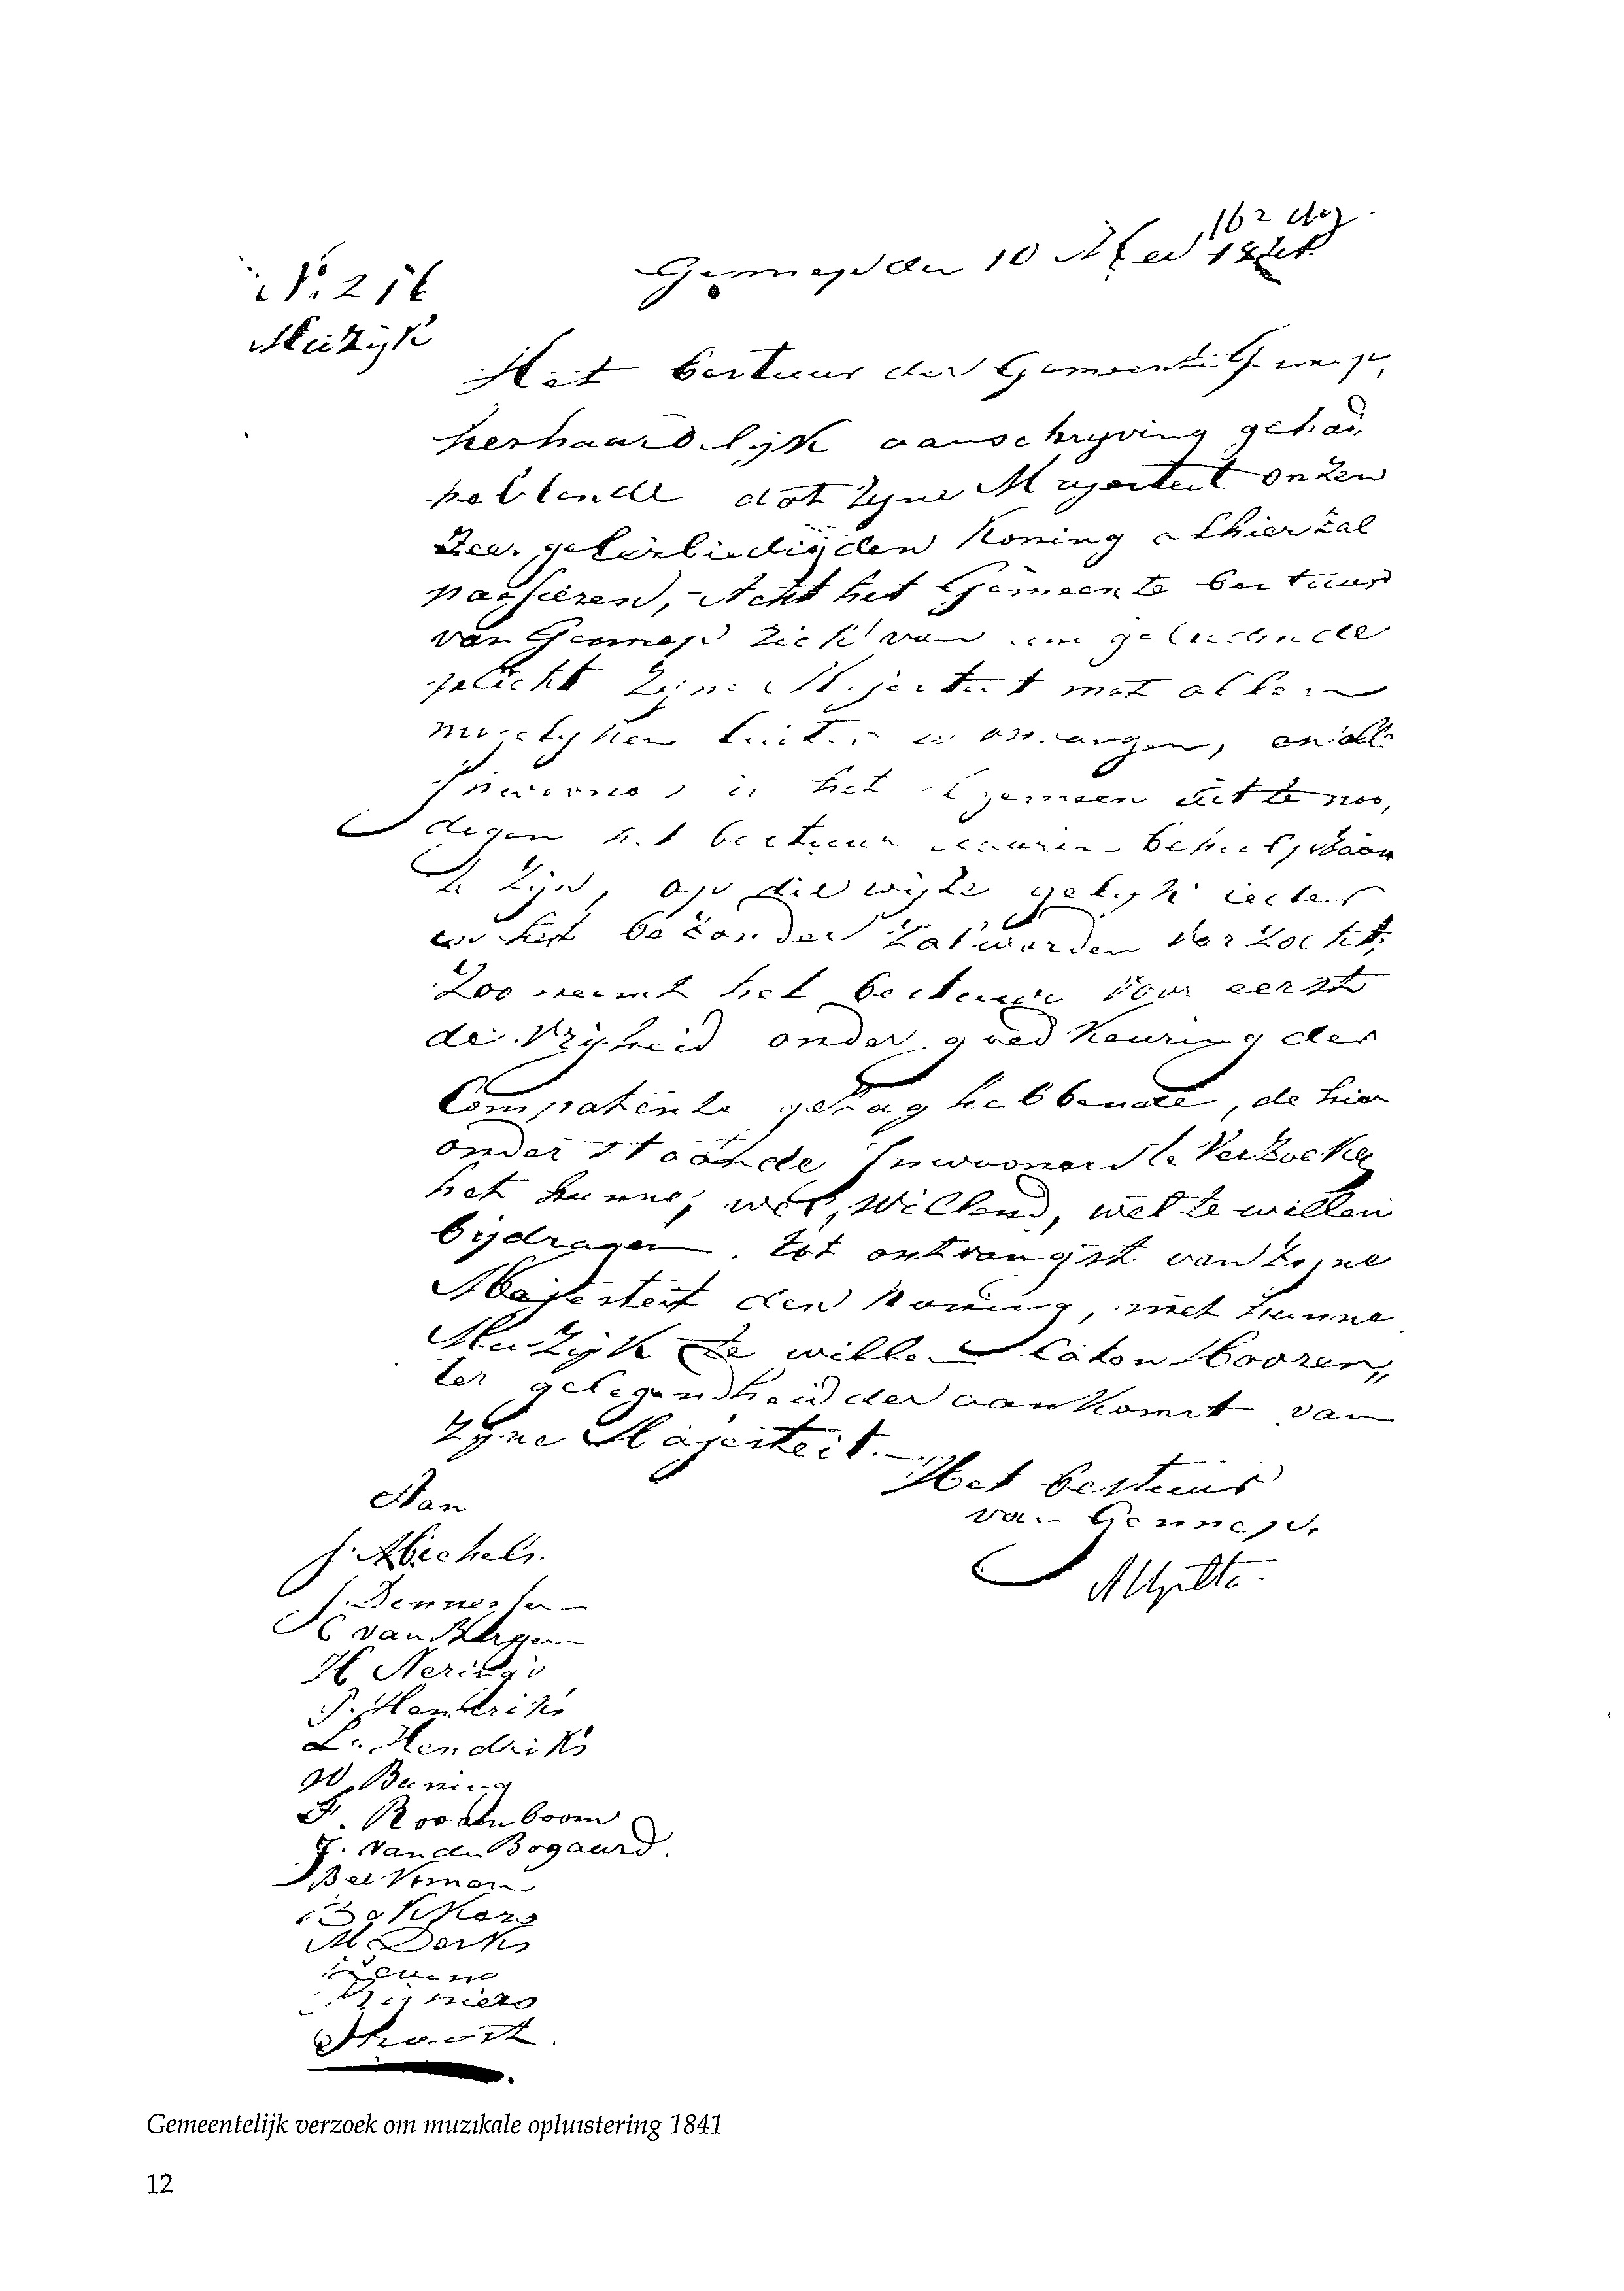 Gennep den 10 Mei
Muzijk
Het bestuur der Gemeente Gennep,
herhaardlijk aanschryving gehad
hebbende dat zyne Majesteit onzen
Zeer geliefden Koning alhier zal
passeren, Acht het Gemeente bestuur
van Gennep zich van een
plicht Zijne Majesteit met allen
luister te ontvangen, en alle
Inwoners in het algemeen uit te noo,
digen het bestuur behulpzaam
te zijn, op die wijze gelijk ieder
in het bezonder zal worden verzocht,
Zoo neemt het bestuur voor eerst
de Vrijheid onder goedkeuring der
Compatente gezag hebbende, de hier
onder staande Inwooners te Verzoeken
het hunne, wel te willen
bijdragen tot ontvangst van zyne
Majesteit den Koning, met hunne
Muzijk te willen laten hooren,,
ter gelegendheid der aankomst van
zyne Majesteit.
Het bestuur
van Gennep.
Aan
J. Michels.
C van Bergen
H Nerings
P. Hendriks
L. Hendriks
W. Buning
F. Roosenboom
J. van de Bogaard.
Bakkers
M Derks
Gemeentelijk verzoek om muzikale opluistering 1841
12